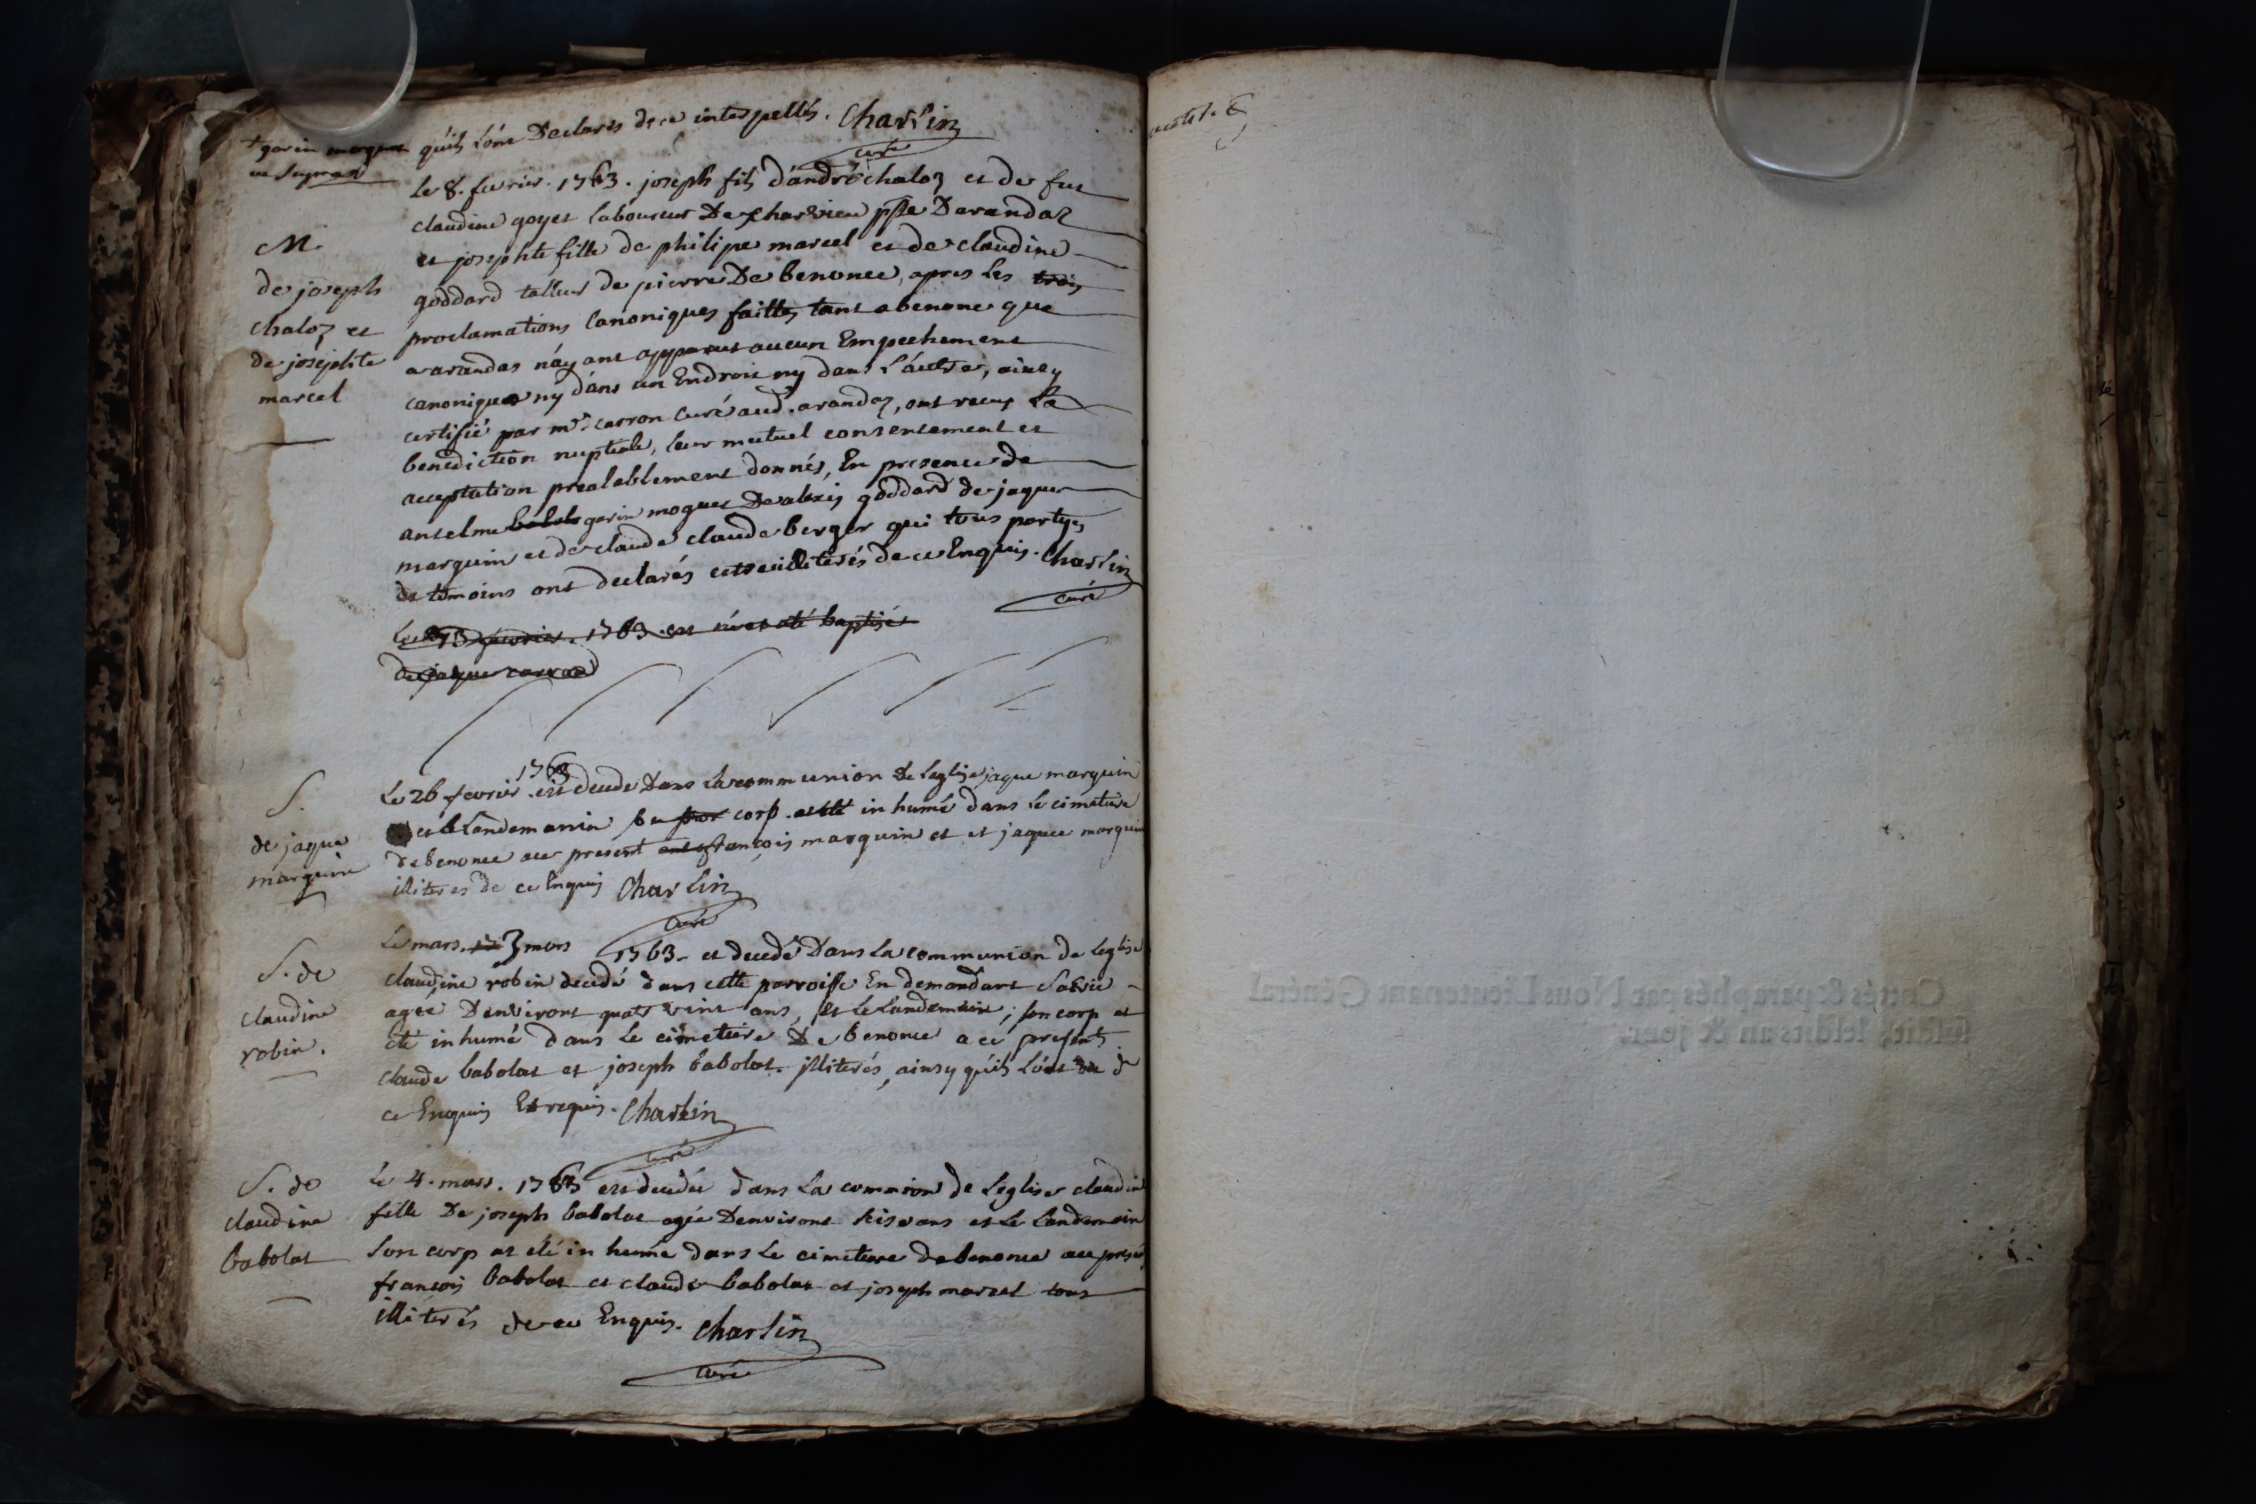 qu'ils L'ont Declarés de ce interpellés. Charlin
curé
M.
de joseph
chaloz et
de josephte
marcel
Le 8. fevrier. 1763. joseph fils d'andré chaloz et de fut
claudine goyet laboureur De charvieu psse Darandaz
et josephte fille de philipe marcel et de claudine
goddard tallieur de pierre De benonce, apres les trois
proclamations Canoniques faittes tant a benonce que
a arandas n'ay ant apparut aucun Empechement
canonique ny dans un Endroit ny dans L'autre, ainsy
certifié par mr. carron Curé aud. arandaz, ont recus La
benediction nuptiale, leur mutuel consentement et
acceptation prealablement donnés, En presence de
anselme garin moguet De alexis goddard de jaque
marquin et de claude claude berger qui tous partyes
et témoins ont declarés estre illiterés de ce Enquis. Charlin
curé
Le 13 fevrier. 1763. est né et eté baptisé
de jaque carrad
S.
de jaque
marquin
1763
Le 26 fevrier est decedé Dans La communion de Leglise jaque marquin
et le Landemanin son corp. at eté in humé dans Le cimetiere
de benonce ace present françois marquin et et jaque marquin
illiteres de ce Enquis Charlin
curé
S. de
claudine
robin.
Le mars. 3 mars 1763. et decedé Dans La communion de Leglise
claudine robin decedé dans cette parroisse En demandant Sa vie
agée D'environt quatr vint ans, et Le Landemain; son corp at
eté inhumé dans Le cimetiere De benonce a ce presents
claude babolat et joseph babolat. illiterés, ainsy qu'ils L'ont de
ce Enquis Et requis. Charlin
curé
S. de
claudine
babolat
Le 4. mars. 1763 est decedée dans La commion de Leglise claudine
fille De joseph babolat agée Denviront seis ans et Le Landemain
Son corp at eté in humé dans Le cimetiere de benonce ace present
françois babolat et claude babolat et joseph marcel tous
illiterés de ce Enquis. Charlin
curé
Cottés & paraphés par Nous Lieutenant Général
susdit, lesdits an & jour.